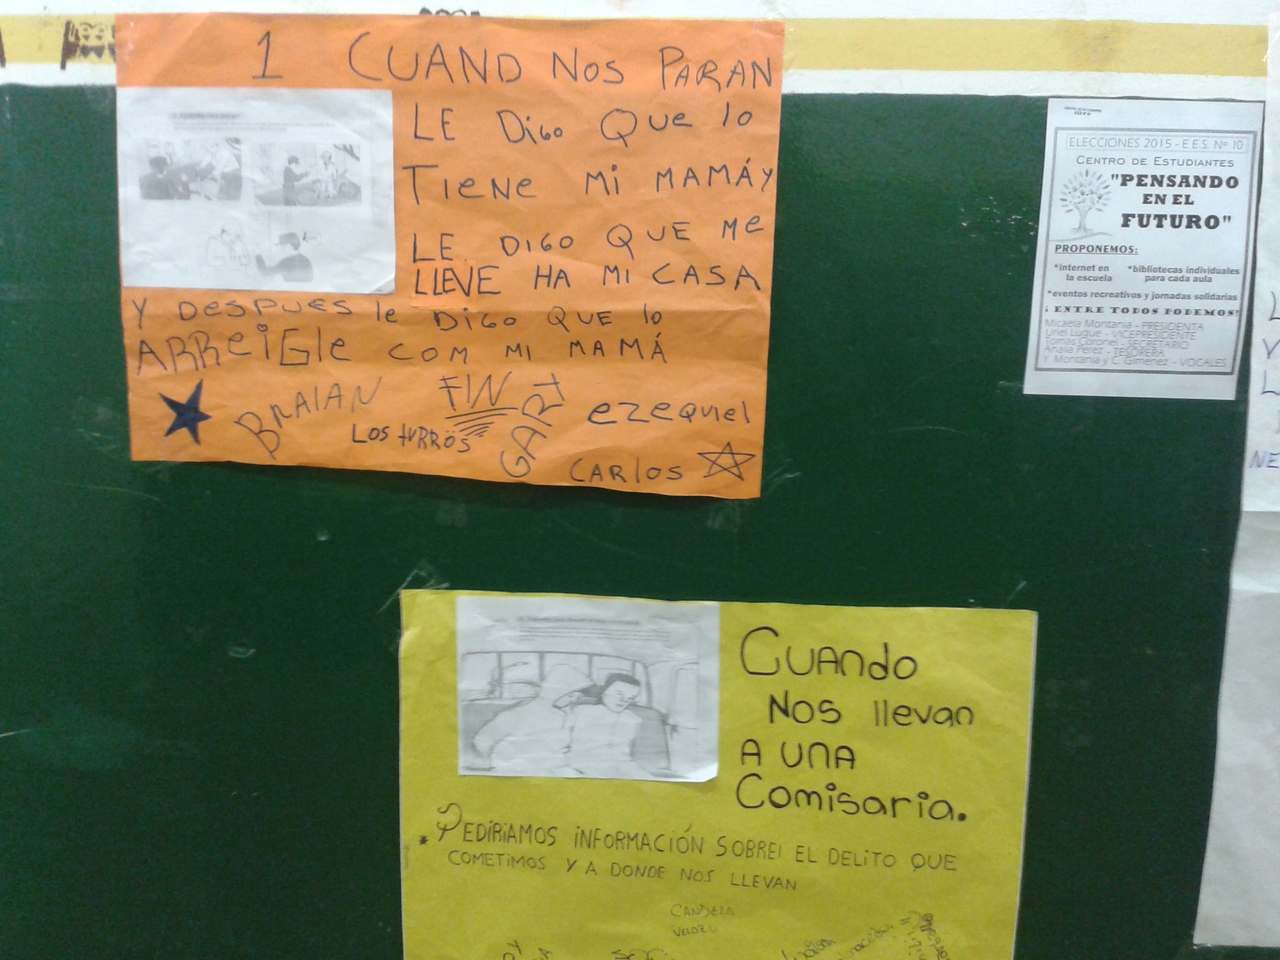 1 CUAND NOS PARAN
LE DiGo QUe lo
TIENE Mi MAMÁ Y
LE DIGO QUE Me
LLEVE HA MI CASA
Y DesPUES le DIGO QUE lo
ARReiGle COM MI MAMÁ
BRAIAN
FIN
LOS tURRÖS
GARY
ezequiel
CARlOS
ELECCIONES 2015 - E.E.S. Nº 10
CENTRO DE ESTUDIANTES
"PENSANDO
EN EL
FUTURO"
PROPONEMOS:
*internet en
la escuela
*bibliotecas individuales
para cada aula
*eventos recreativos y jornadas solidarias
¡ENTRE TODOS PODEMOS!
Micaela Montania - PRESIDENTA
Uriel Luque - VICEPRESIDENTE
Tomas Coronel - SECRETARIO
Analia Perez - TESORERA
Y. Montania y C. Gimenez - VOCALES
CUANdo
NOS llevan
A UNA
Comisaria.
* PEDIRIAMOS INFORMACIÓN SOBREI EL DELITO QUE
COMETIMOS Y A DONDE NOS LLEVAN
CANDELA
VELOZO
NE